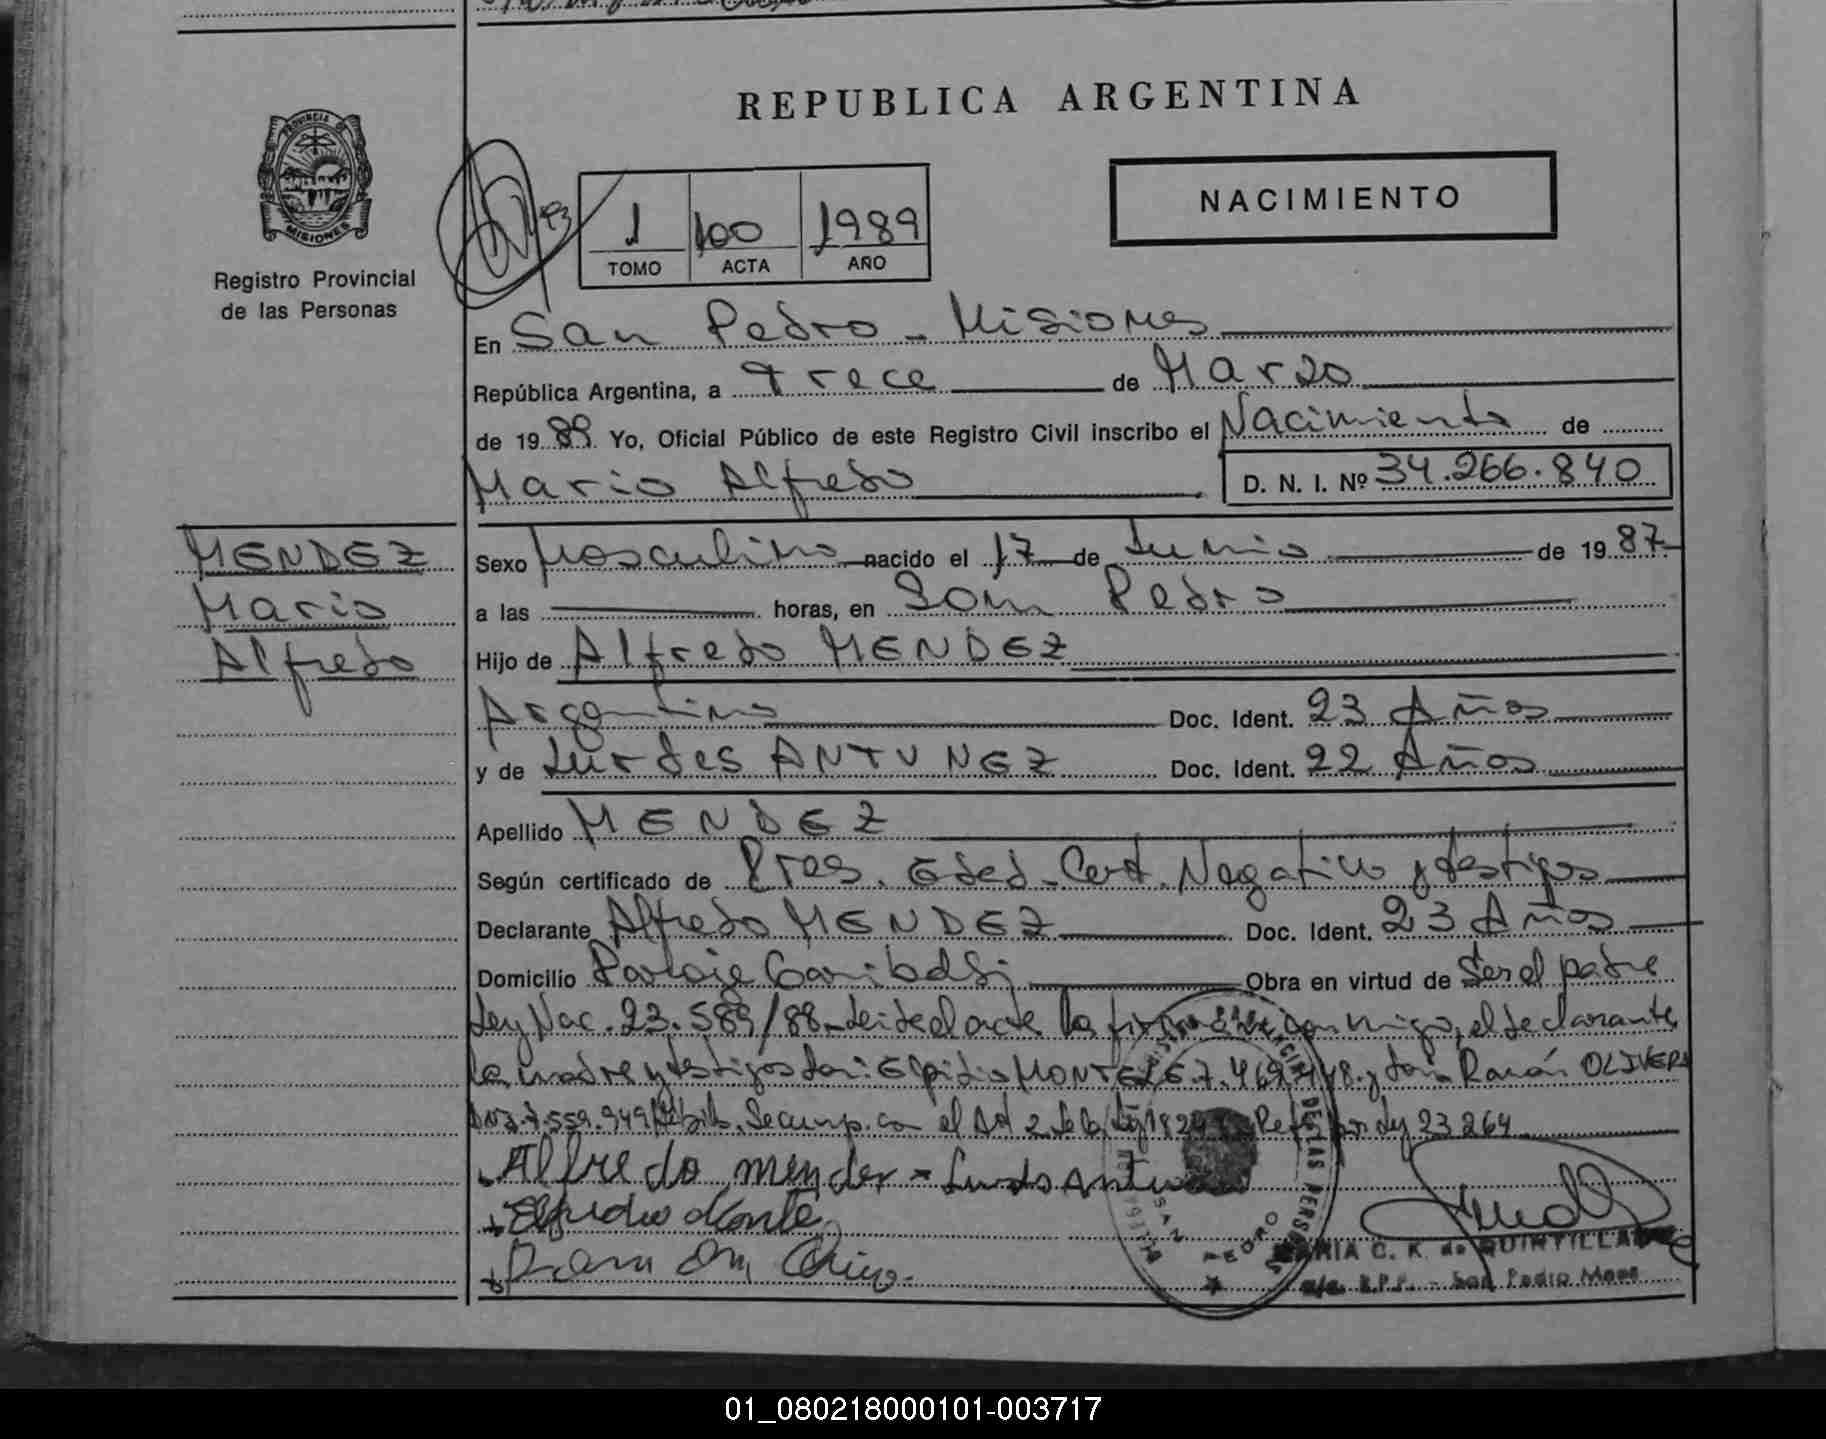 REPUBLICA ARGENTINA
PROVINCIA DE
MISIONES
Registro Provincial
de las Personas
1 100 1989
TOMO ACTA AÑO
NACIMIENTO
En San Pedro - Misiones
República Argentina, a Trece de Marzo
de 1989 Yo, Oficial Público de este Registro Civil inscribo el Nacimiento de
Mario Alfredo D. N. I. Nº 34.266.840
MENDEZ
Mario
Alfredo
Sexo Masculino nacido el 17 de Junio de 1987
a las horas, en San Pedro
Hijo de Alfredo MENDEZ
Argentino Doc. Ident. 23 Años
y de Lurdes ANTUNEZ Doc. Ident. 22 Años
Apellido MENDEZ
Según certificado de Pres. Edad - Cert. Negativo y testigos
Declarante Alfredo MENDEZ Doc. Ident. 23 Años
Domicilio Paraje Garibaldi Obra en virtud de Ser el padre
Ley Nac. 23.589/88 - Leida el acta la conmigo, el declarante
la madre y testigos Elpidio y Ramón OLIVERA
con el Art 2 de la Ley 23264
Alfredo mendez - Antu
MARIA C. K. de QUINTILLAN
R.P.P. - San Pedro Mnes
01_080218000101-003717